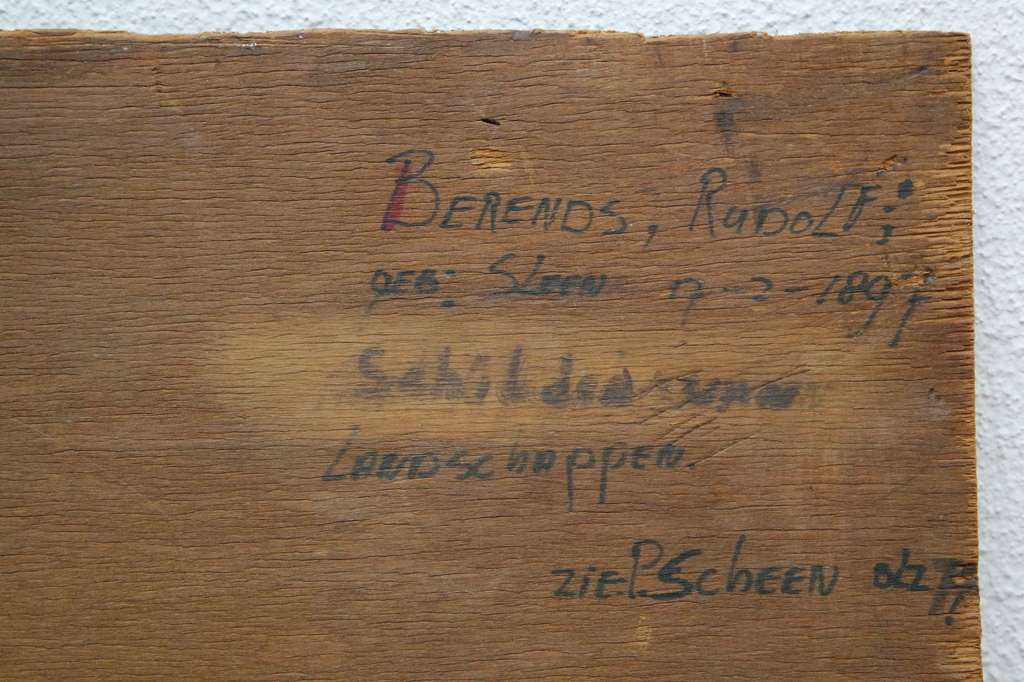 BERENDS, RUDOLF:
GEB: SLEEN 17-2-1897
Schilder van
LANDSchAPPEN.
ZIE P. SchEEN